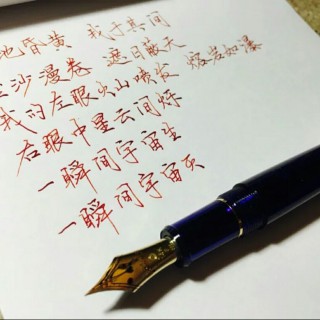 地昏黄 我于其间
沙漫卷 遮日蔽天
我的左眼火山喷发 熔岩如瀑
右眼中星云闪烁
一瞬间宇宙生
一瞬间宇宙灭